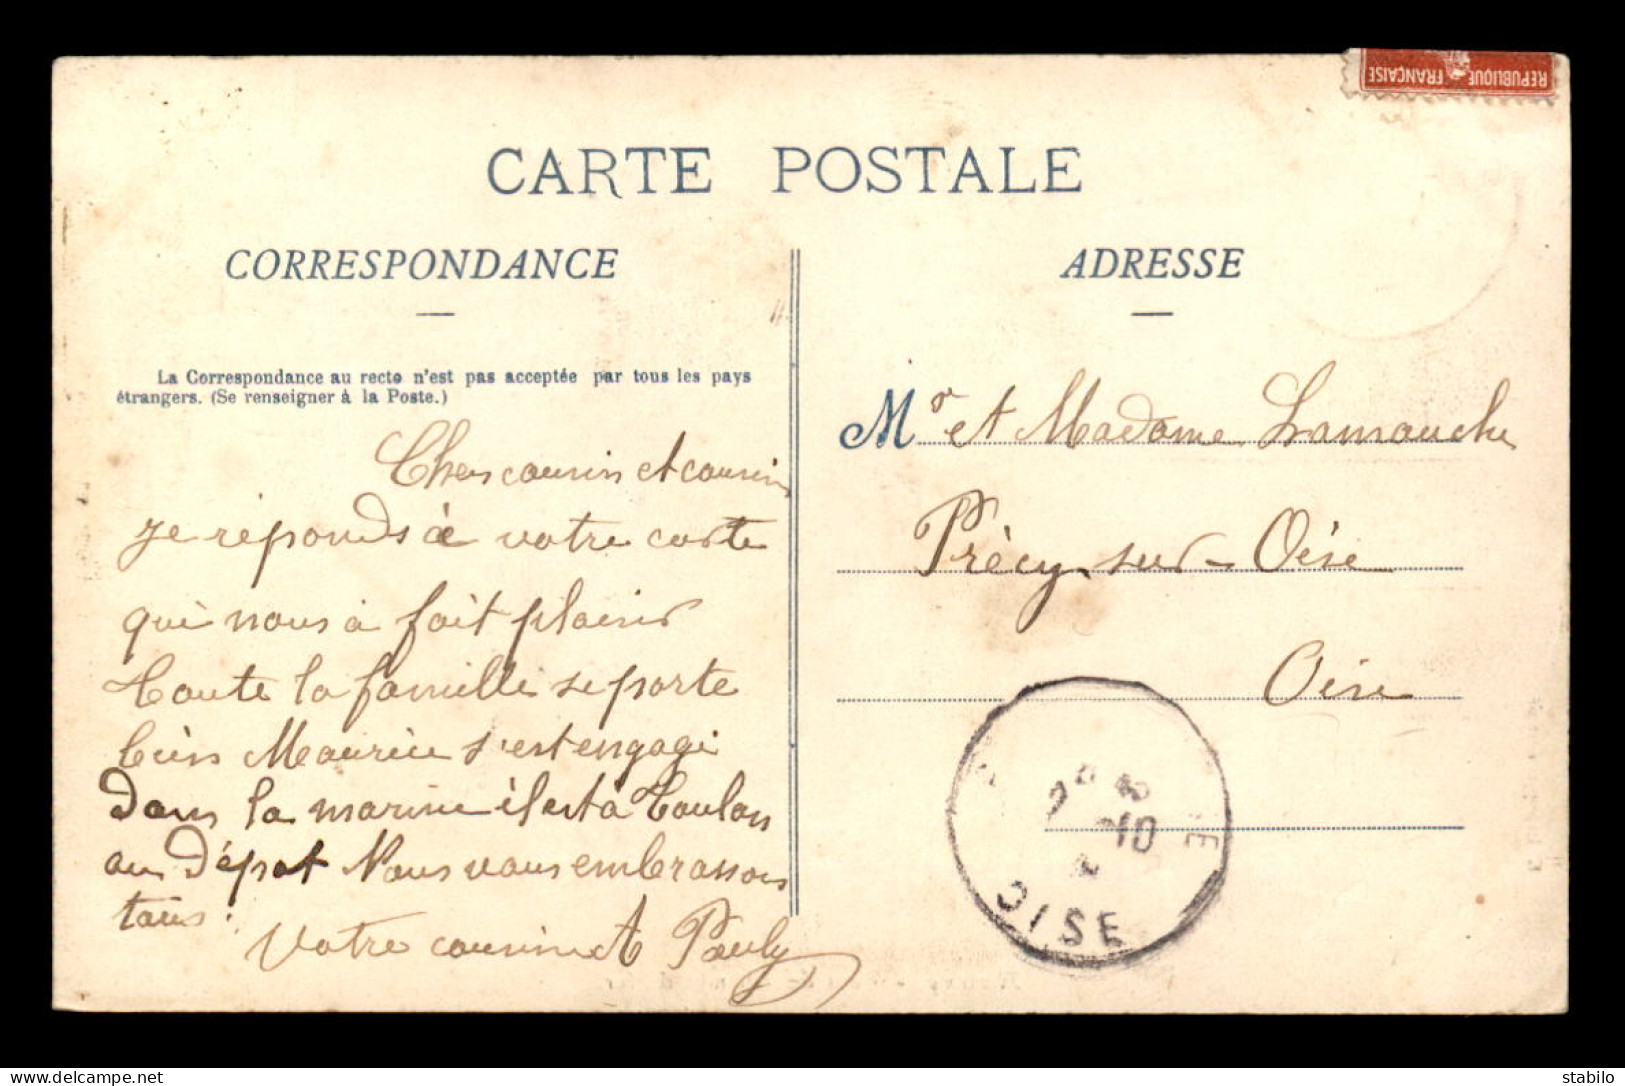 REPUBLIQUE FRANÇAISE
CARTE POSTALE
CORRESPONDANCE
ADRESSE
La Correspondance au recto n'est pas acceptée par tous les pays
étrangers. (Se renseigner à la Poste.)
Chers cousin et cousine
je réponds à votre carte
qui nous a fait plaisir
toute la famille se porte
bien Maurice s'est engagé
dans la marine il est à Toulon
au dépot Nous vous embrassons
tous.
Votre cousin A Pauly
Mr et Madame Lamouche
Précy-sur-Oise
Oise
10
OISE
delcampe.net
stabilo